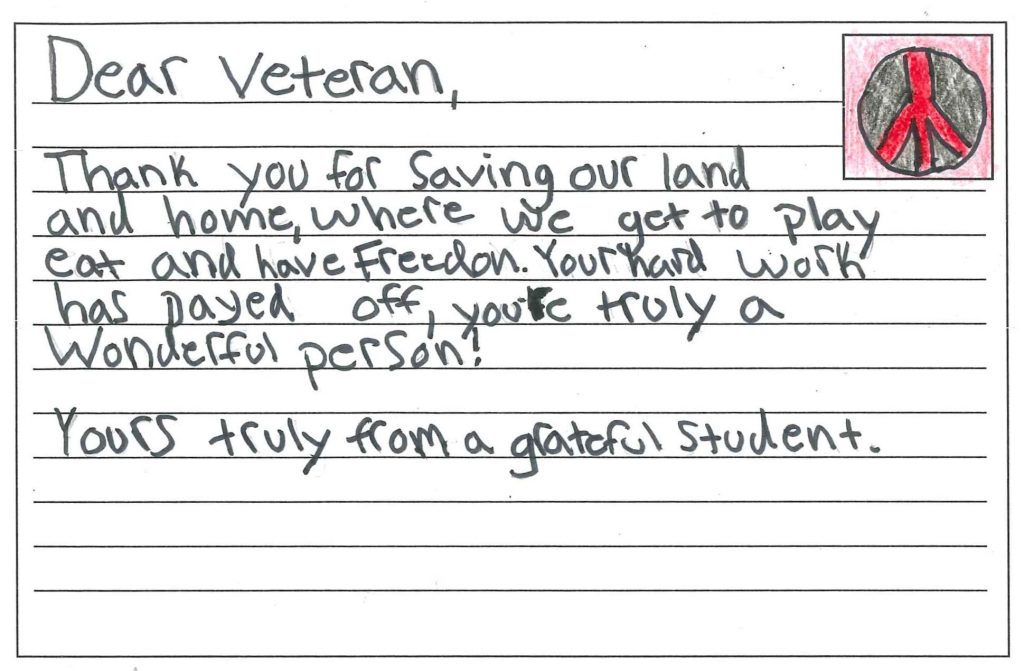 Dear Veteran,
Thank you for Saving our land
and home, where we get to play
eat and have Freedon. Your hard work
has payed off, you're truly a
Wonderful person!
Yours truly from a grateful Student.